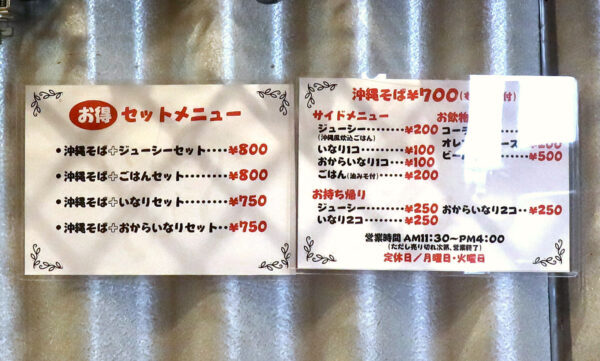 お得 セットメニュー
・沖縄そば+ジューシーセット‥¥800
・沖縄そば+ごはんセット‥‥¥800
・沖縄そば+いなりセット‥‥¥750
・沖縄そば+おからいなりセット‥¥750
沖縄そば¥700
サイドメニュー
ジューシー‥‥‥‥¥200
(沖縄風炊込ごはん)
いなり1コ‥‥‥¥100
おからいなり1コ‥¥100
ごはん(油みそ付)‥‥¥200
お飲物
コー
オレ ース
ビー ¥500
お持ち帰り
ジューシー‥‥‥‥¥250
いなり2コ‥‥‥‥¥250
おからいなり2コ‥¥250
営業時間 AM11:30~PM4:00
(ただし売り切れ次第、営業終了)
定休日/月曜日・火曜日